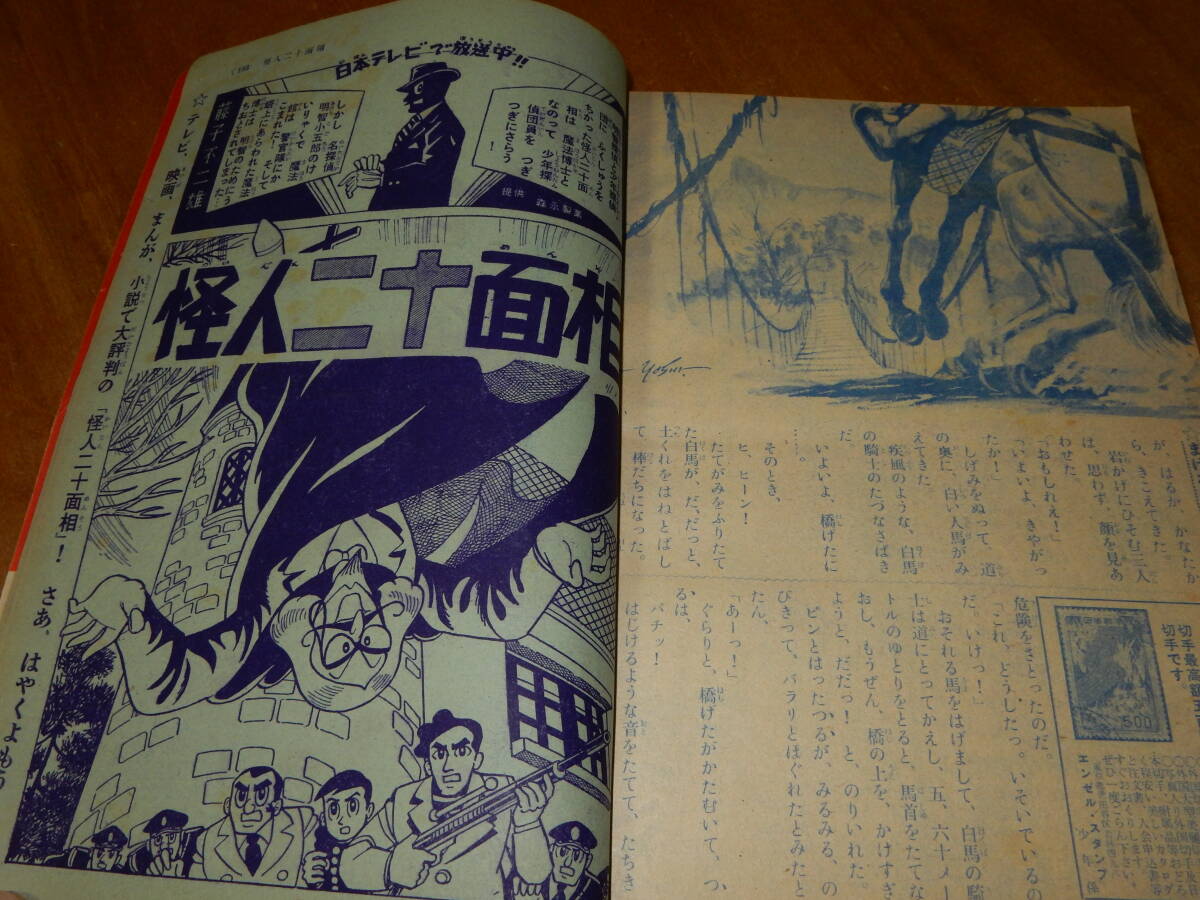 (193 怪人二十面相
日本テレビで放送中!!
ちかった怪人二十面
相は 魔法博士と
なのって 少年探
偵団員を つぎ
つぎにさらう
!
しかし 名探偵
明智小五郎のけ
いりゃくで 魔法
館は 警官隊にか
こまれた! そして
塔上にあらわれた魔法
博士は 明智のためにう
ちおとされてしまった…
提供 森永製菓
藤子不二雄
怪人二十面相
☆テレビ、映画、まんが、小説で大評判の「怪人二十面相」! さあ、はやくよもう
が、はるか かなたか
ら、きこえてきた。
岩かげにひそむ三人
は、思わず、顔を見あ
わせた。
「おもしれえ!」
「いまいよ、きやがっ
たか!」
しげみをぬって、道
の奥に、白い人馬がみ
えてきた。
疾風のような、白馬
の騎士のたづなさばき
だ。
いよいよ、橋げたに
……。
そのとき、
ヒ、ヒーン!
たてがみをふりたて
た白馬が、だ、だっと、
土くれをはねとばし
て、棒だちになった。
危険をさとったのだ。
「これ、どうしたっ。いそいでいるの
だ。いけっ!」
おそれる馬をはげまして、白馬の騎
士は道にとってかえし、五、六十メー
トルのゆとりをとると、馬首をたてな
おし、もうぜん、橋の上を、かけすぎ
ようと、だだっ! と、のりいれた。
ピンとはったつるが、みるみる、の
びきって、バラリとほぐれたとみたと
たん、
「あーっ!」
ぐらりと、橋げたがかたむいて、つ
るは、
バチッ!
はじけるような音をたてて、たちき
切手です
500
エンゼル・スタンプ
少年係